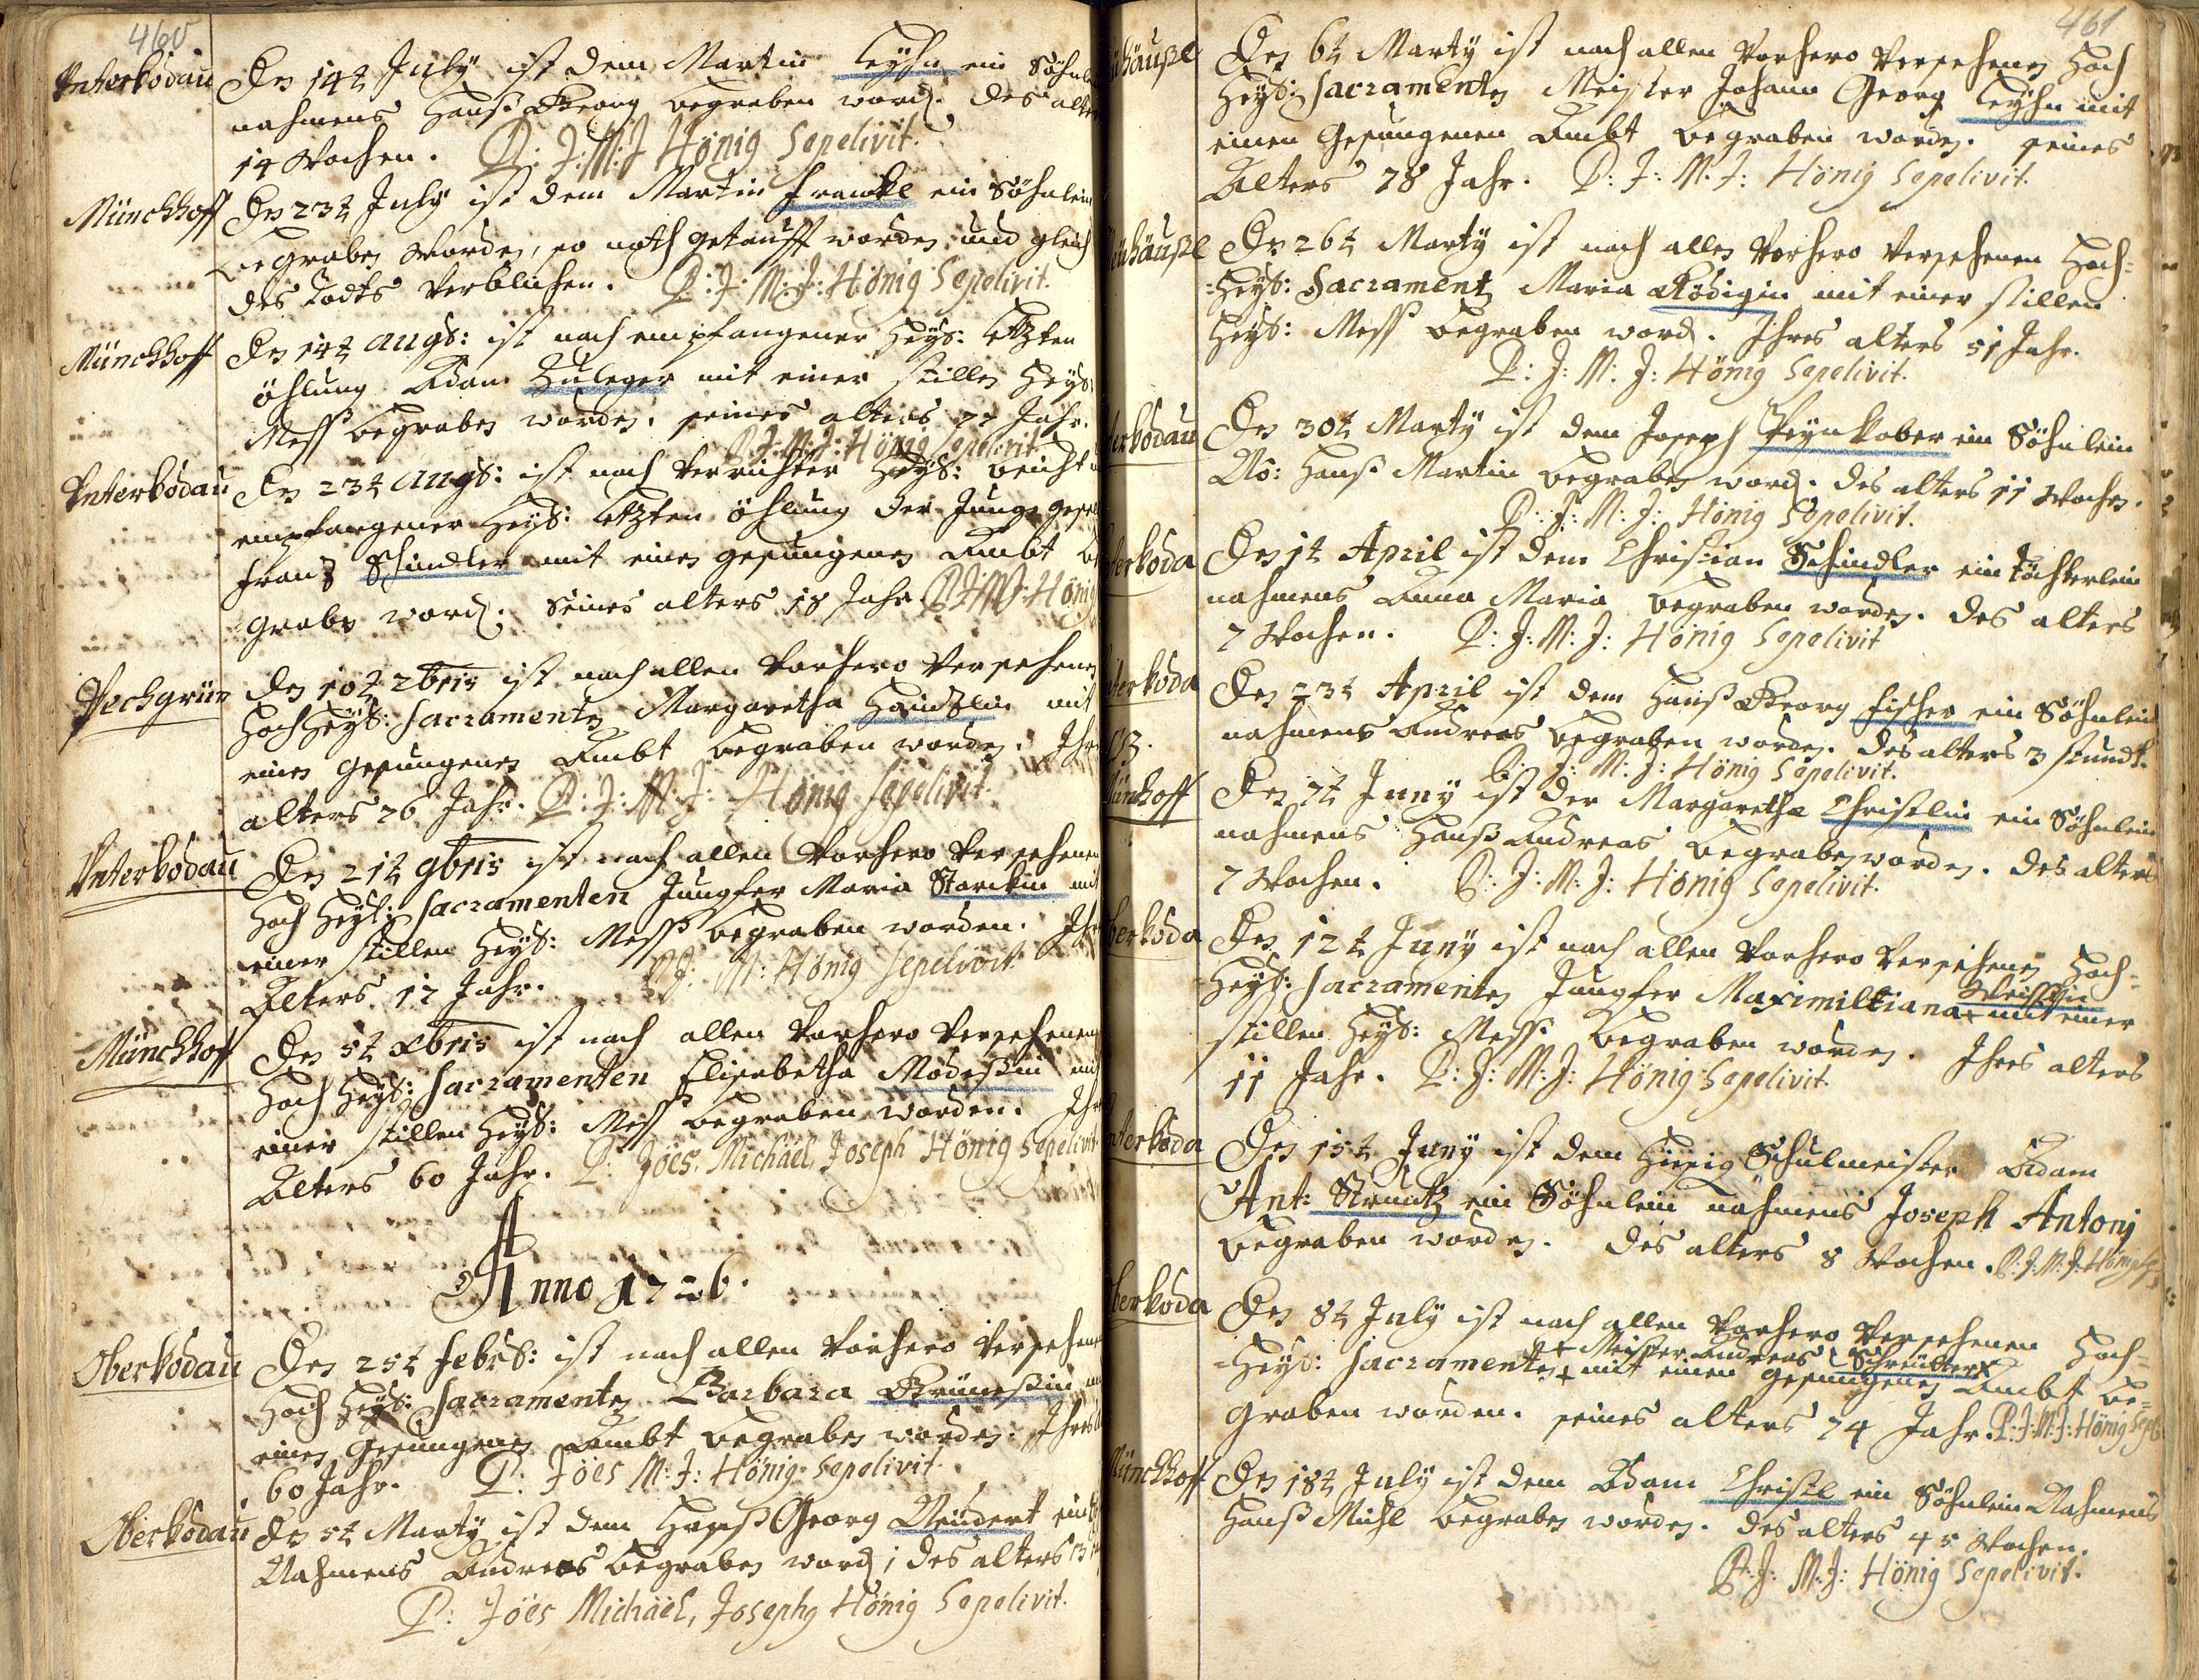 460
Unterkodau Den 14t July ist dem Martin Keyhn ein Söhnl
nahmens Hanß Georg begraben word. des alte
14 Wochen. P: J: M: J Hönig Sepelivit.
Münchhoff Den 23t July ist dem Martin Franckl ein Söhnlein
begraben worden, so noth getaufft worden und gleich
des Todts verblichen. P: J: M: J: Hönig Sepelivit.
Münchhoff Den 14t Augs: ist nach empfangener Heyl: letzten
öhlung Adam Zuleger mit einer stillen Heyl:
Mess begraben worden. seines alters 77 Jahr.
P: J: M: J: Hönig Sepelivit.
Unterkodau Den 23t Augs: ist nach verrichter Heyl: beicht
empfangener Heyl: letzten öhlung der Junge gesel
Frantz Schindler mit einen gesungenen Ambt be
graben word. Seines alters 18 Jahr P: J: M: J: Hönig
Pechgrün Den 10t 2bris ist nach allen vorhero versehenen
Hoch Heyl: Sacramenten Margaretha mit
einen gesungenen Ambt begraben worden. Ihres
alters 76 Jahr. P: J: M: J: Hönig Sepelivit.
Unterkodau Den 21t 9bris ist nach allen vorhero versehenen
Hoch Heyl: Sacramenten Jungfer Maria Starckin mit
einer stillen Heyl: Mess begraben worden. Ihr
Alters 17 Jahr. P: J: M: Hönig Sepelivit
Münchhoff Den 5t Xbris ist nach allen vorhero versehenen
Hoch Heyl: Sacramenten Elisabetha Mödeßin mit
einer stillen Heyl: Mess begraben worden. Ihr
Alters 60 Jahr. P: Jöes. Michael, Joseph Hönig Sepelivit
Anno 1726.
Oberkodau Den 25t Febrl: ist nach allen vorhero versehene
Hoch Heyl: Sacramenten Barbara
einen gesungenen Ambt begraben worden. Ihres
60 Jahr. P: Jöes M: J: Hönig Sepelivit.
Oberkodau Den 5t Marty ist dem Hanß Georg Neudert ein
Nahmens Andreas begraben word, des alters 13
P: Jöes Michaël, Joseph Hönig Sepelivit.
461
häußl Den 6t Marty ist nach allen vorhero versehenen Hoch
Heyl: Sacramenten Meister Johann Georg Keyhn mit
einen gesungenen Ambt begraben worden. seines
Alters 78 Jahr. P: J: M: J: Hönig Sepelivit.
häußl Den 26t Marty ist nach allen vorhero versehenen Hoch=
Heyl: Sacramente Maria Rödigin mit einer stillen
Heyl: Mess begraben word. Ihres alters 51 Jahr.
P: J: M: J: Hönig Sepelivit.
erkodau Den 30t Marty ist dem Joseph Peynkober ein Söhnlein
No: Hanß Martin begraben word. des alters 11 Wochen.
P: J: M: J: Hönig Sepelivit.
erkoda Den 1t April ist dem Christian Schindler ein Töchterlein
nahmens Anna Maria begraben worden. des alters
7 Wochen. P: J: M: J: Hönig Sepelivit
terkoda Den 23t April ist dem Hanß Georg Fischer ein Söhnlein
nahmens Andreas begraben worden. des alters 3 stundt.
P: J: M: J: Hönig Sepelivit.
ünchoff Den 7t Juny ist der Margaretha Christlin ein Söhnlein
nahmens Hanß Andreas begraben worden. des alters
7 Wochen. P: J: M: J: Hönig Sepelivit.
berkoda Den 12t Juny ist nach allen vorhero versehenen Hoch=
Heyl: Sacramenten Jungfer Maximilliana + mit einer
stillen Heyl: Mess begraben worden. Ihres alters
11 Jahr. P: J: M: J: Hönig Sepelivit.
nterkoda Den 15t Juny ist dem Schulmeister Adam
Ant: Struntz ein Söhnlein nahmens Joseph Antonj
begraben worden. des alters 8 Wochen. P: J: M: J: Hönig
berkoda Den 8t July ist nach allen vorhero versehenen Hoch=
+ Meister Andreas
Heyl: Sacramenten + mit einen gesungenen Ambt be=
graben worden. seines alters 74 Jahr. P: J: M: J: Hönig Sepl:
Münchhoff Den 18t July ist dem Adam Christl ein Söhnlein Nahmens
Hanß Michl begraben worden. des alters 45 Wochen.
P: J: M: J: Hönig Sepelivit.